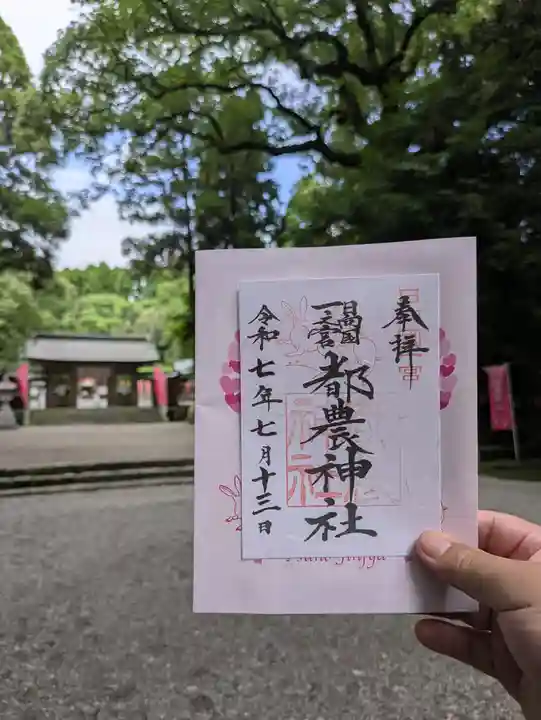 奉拝
日向国
一之宮
都農神社
令和七年七月十三日
Tsuno Jinjya